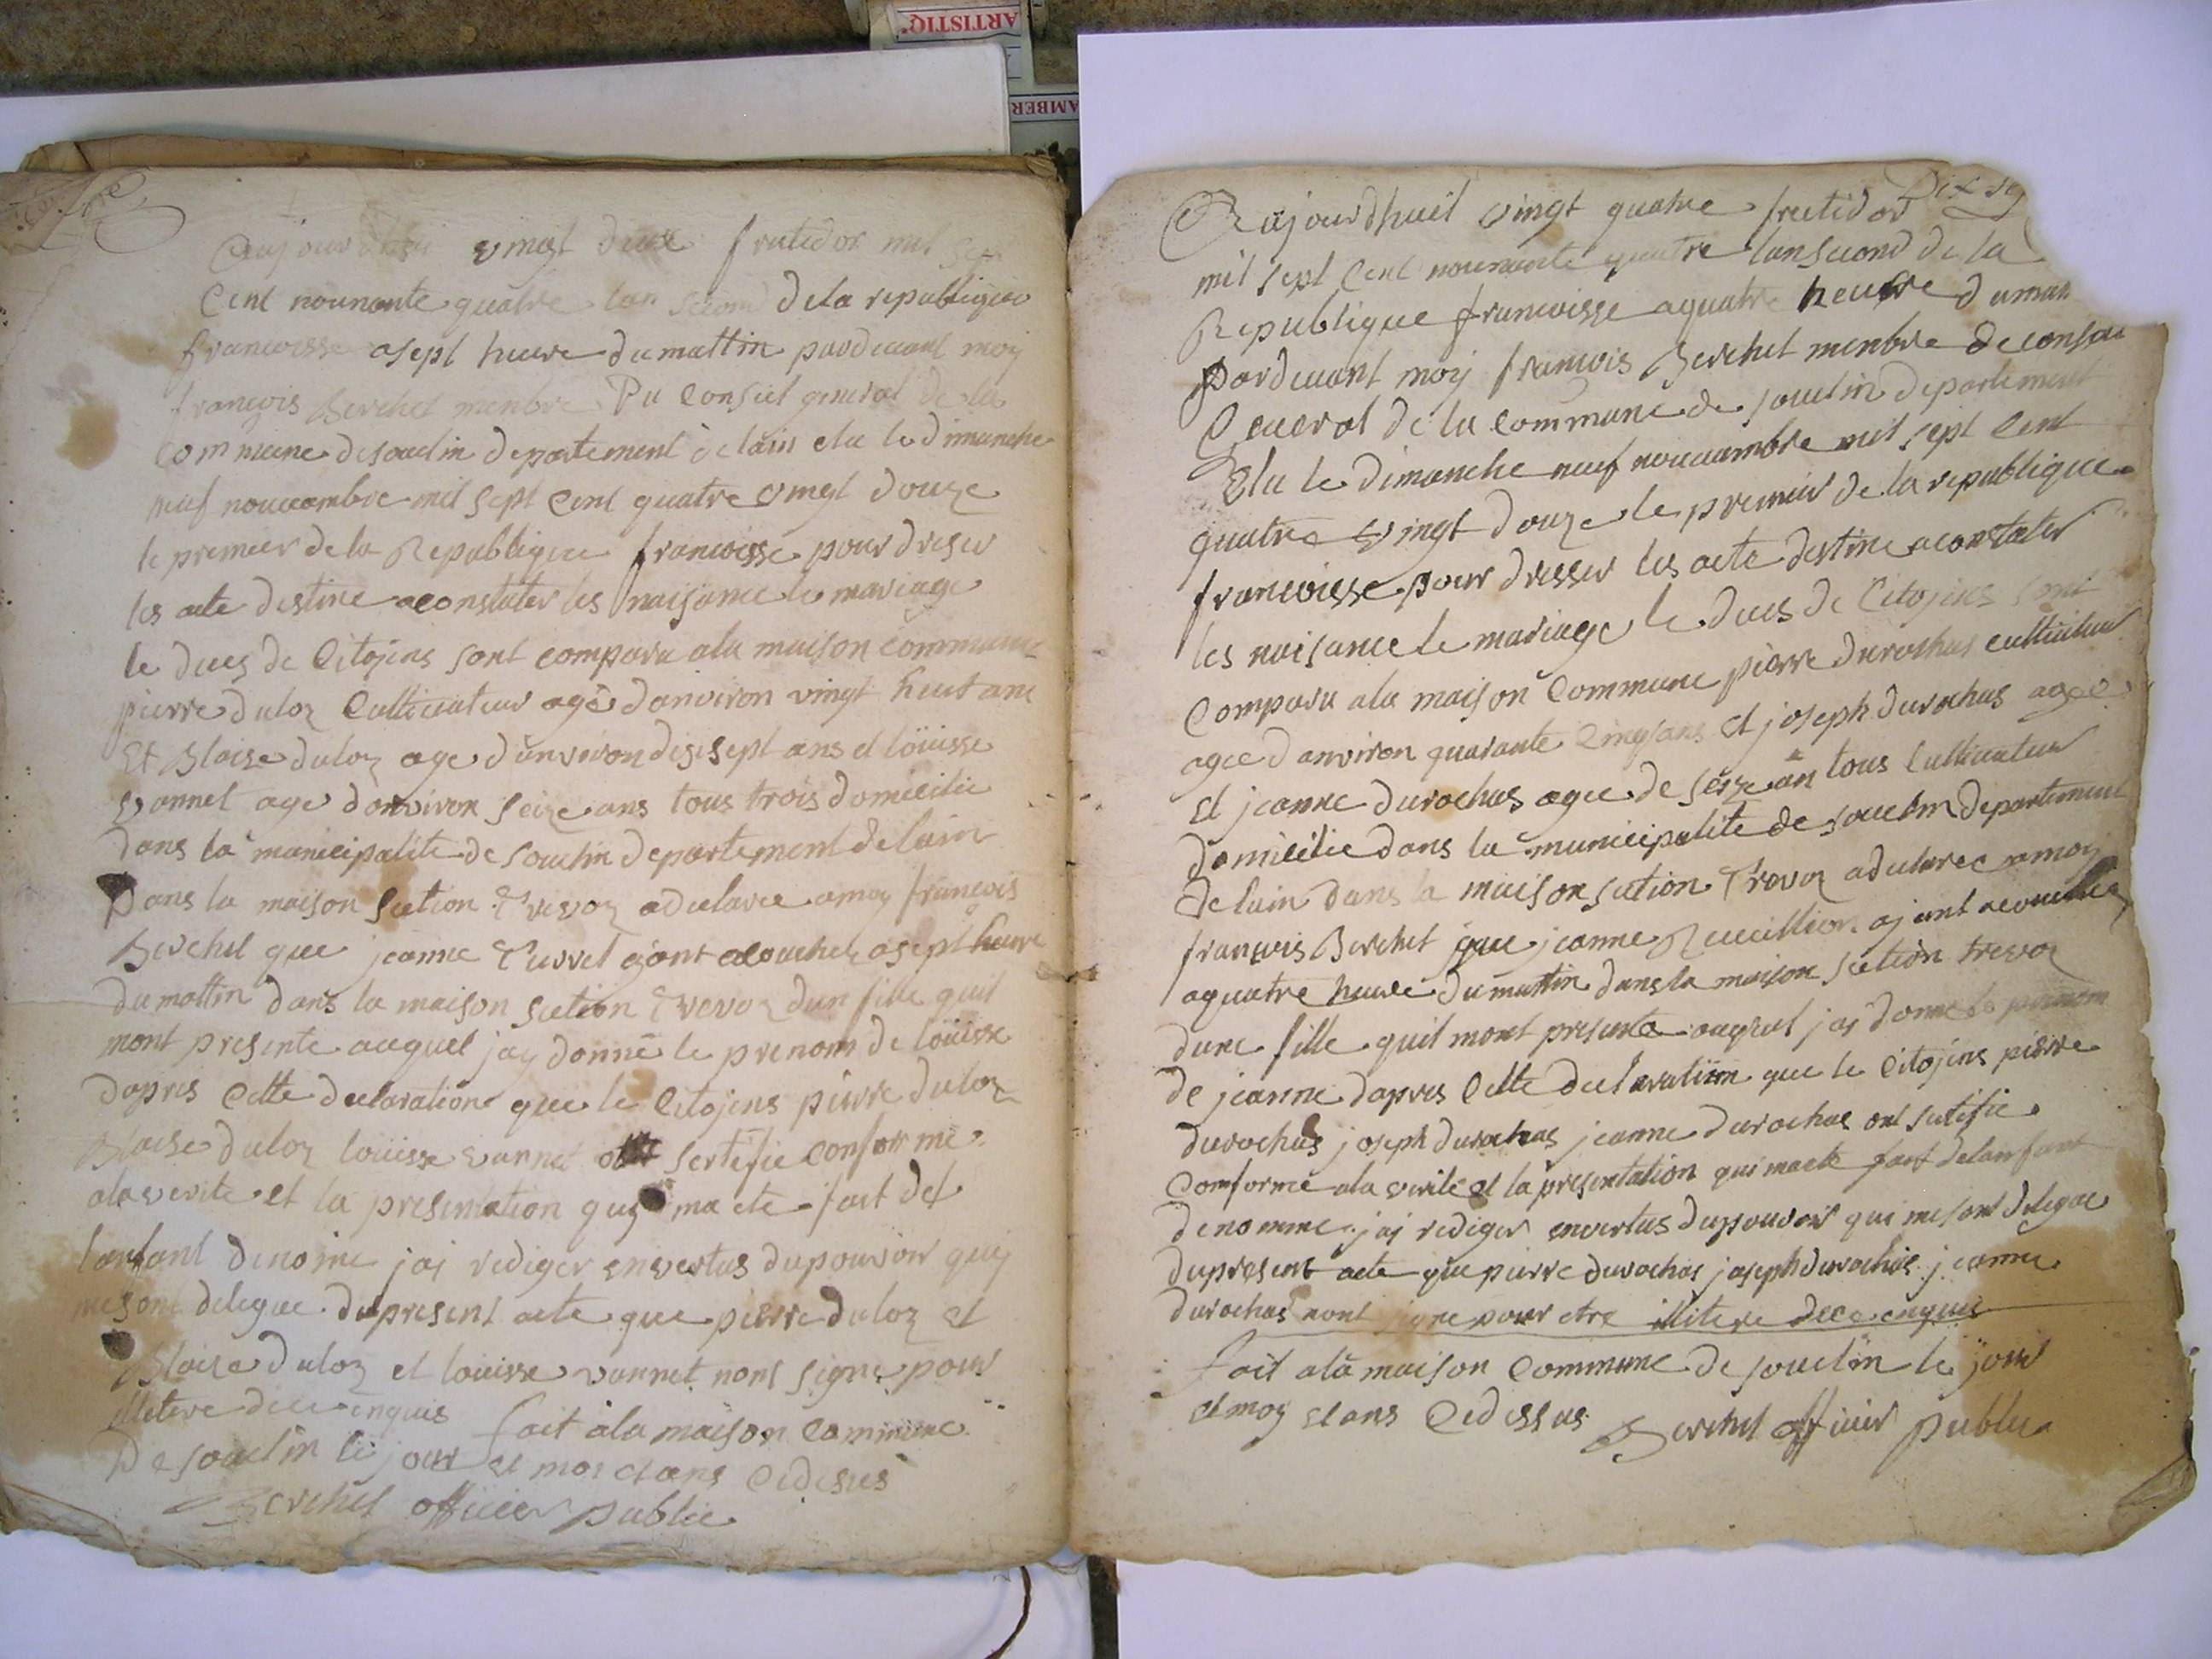 ARTISTIQ
AMBER
Aujourdhui vingt deux frutidor mil sept
Cent nounante quatre lan second dela republique
francoisse asept heure dumattin pardevant moy
françois Berchet menbre Du Consiel general de la
commune desouclin departement delain elu le dimanche
neuf nouvambre mil sept Cent quatre vingt douze
le premier de la Republique francoisse pour dreser
les acte destine aconstater les naisance le mariage
le dues de Citojens sont comparu ala maison commune
pierre duloz Cultivateur agé danviron vingt heut ans
Et Blaise duloz age danviron disisept ans et loüisse
vannet age danviron seize ans tous trois domicilie
dans la municipalite de souclin departement delain
Dans la maison section Trevoz adeclaree amoy françois
Berchet que jeanne Turrel ajant acouchez asept heure
dumattin dans la maison section Trevoz dun fille quil
mont presente auquel jay donné le prenom de loüisse
dapres Cette declaration que le Citojens pierre duloz
Blaise duloz loüisse vannet ont sertifie conforme
alaverite et la presentation quy ma ete fait del
lanfant denome jai rediger envertus dupouvoir quy
mesont delegue dupresent acte que pierre duloz et
Blaise duloz et loüisse vannet nont signe pour
illetere dece enquis fait ala maison Commune
De souclin le jour et moi et ans Cidesus
Berchet officier public
Dix sep
Aujourdhuit vingt quatre frutidor
mil sept Cent nounante quatre lansecond de la
Republique francoisse aquatre heure dumat
pardevant moy francois Berchet menbre de consei
General de la Commune de souclin departement
Elu le dimanche neuf nouvambre mil sept Cent
quatre vingt douze le premier de la republique
francoisse pour dresser les acte destine aconstater
les naisance le mariage le dues de Citojens sont
Comparu ala maison Commune pierre durochas cultivateur
agee danviron quarante Cinq ans et joseph durochas agee
et jeanne durochas agee de seize an tous Cultivateur
domicilie dans la municipalite de souclin departement
delain dans la maison section Trevoz adeclaree amoy
françois Berchet que jeanne ajant acouchez
aquatre heure dumattin dans la maison section trevoz
dune fille quil mont presente auquel jay donné le prenom
de jeanne dapres Cette declaration que le Citojens pierre
durochas joseph durochas jeanne durochas ont sertifie
Conforme ala verite et la presentation qui maete fait delanfant
denomme jaj rediger envertus dupouvoir qui mesont delegue
dupresent acte que pierre durochas joseph durochas jeanne
durochas nont signe pour etre illitere dece enquis
fait ala maison Commune de souclin le jour
et moy et ans Cidessus Berchet officier public